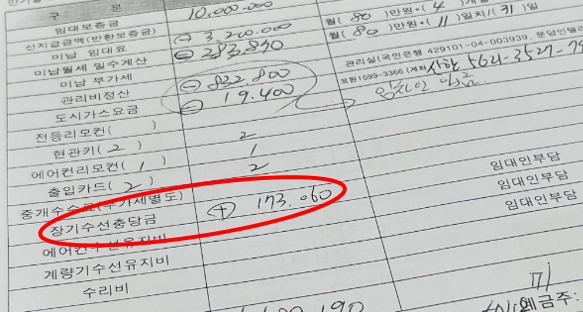 구 분
임대보증금 10,000,000 월( 80 )만원*( 4 )개
선지급금액(반환보증금) 월( 80 )만원*( 11 )일치/( 31 )일
미납 임대료 ⊖ 3,200,000
미납월세 일수계산 ⊖ 283,870
미납 부가세 관리실(국민은행 429101-04-003939, 분당인텔
관리비정산 ⊖ 832,800
도시가스요금 ⊖ 19,400
전등리모컨( )
현관키( 2 ) 2
에어컨리모컨( 1 ) 1
출입카드( 2 ) 2
중개수수료(부가세별도) 임대인부담
장기수선충당금 ⊕ 173.060 임대인부담
에어컨수선유지비 임대인부담
계량기수선유지비
수리비
예금주: